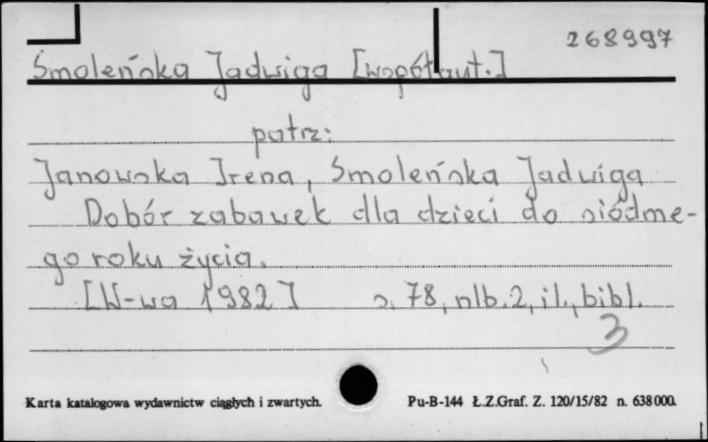 268997
Smoleńska Jadwiga [współaut.]
patrz:
Janowska Irena, Smoleńska Jadwiga
Dobór zabawek dla dzieci do siódme-
go roku życia.
[W-wa 1982] s. 78, nlb. 2, il., bibl.
3
Karta katalogowa wydawnictw ciągłych i zwartych. Pu-B-144 Ł.Z.Graf. Z. 120/15/82 n. 638000.